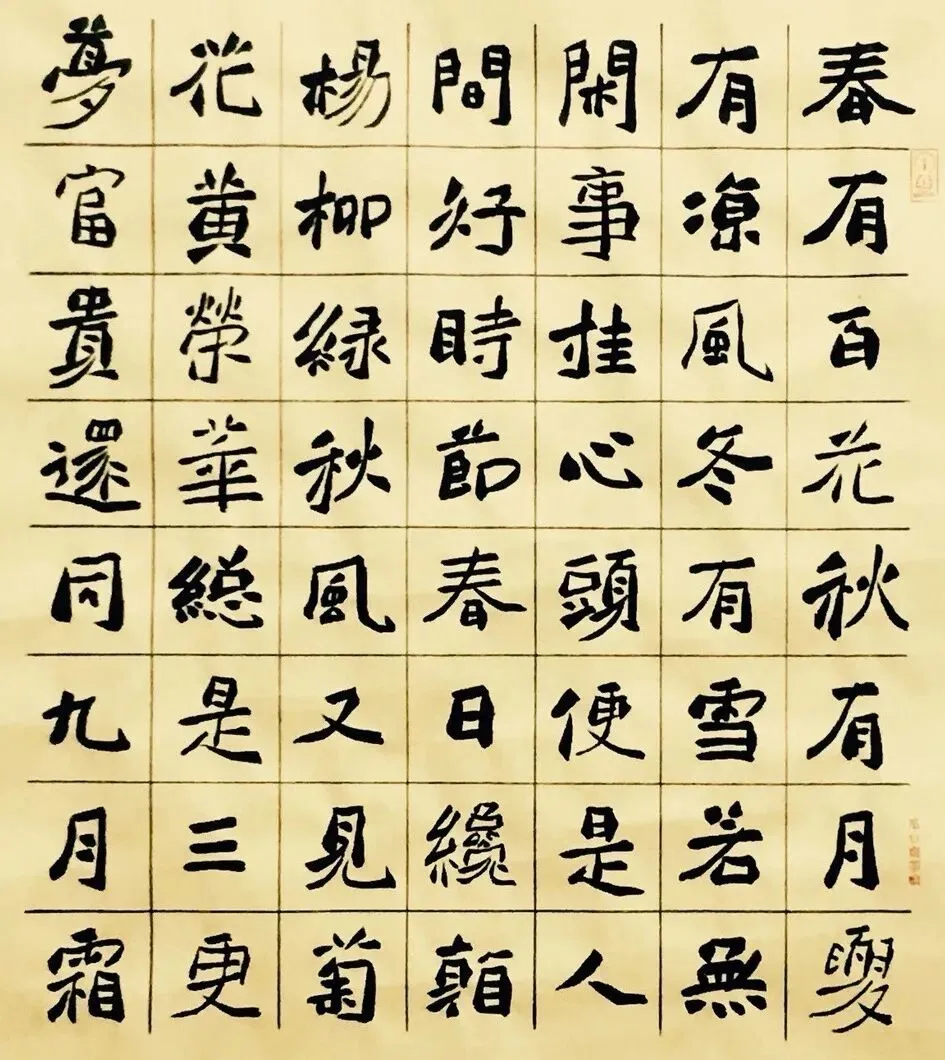 春有百花秋有月夏
有涼風冬有雪若無
閑事挂心頭便是人
間好時節春日纔
楊柳緑秋風又見菊
花黄榮華総是三更
夢富貴還同九月霜